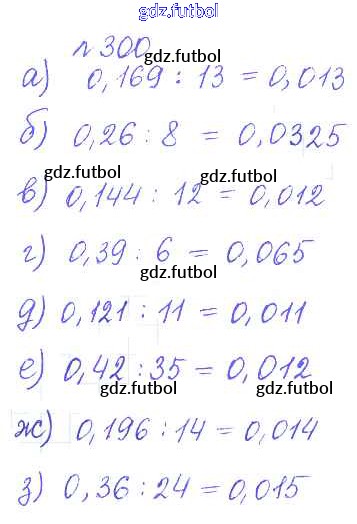 gdz.futbol
№ 300
gdz.futbol
а) 0,169 : 13 = 0,013
gdz.futbol
б) 0,26 : 8 = 0,0325
gdz.futbol gdz.futbol
в) 0,144 : 12 = 0,012
г) 0,39 : 6 = 0,065
gdz.futbol
д) 0,121 : 11 = 0,011
е) 0,42 : 35 = 0,012
gdz.futbol gdz.futbol
ж) 0,196 : 14 = 0,014
з) 0,36 : 24 = 0,015
gdz.futbol